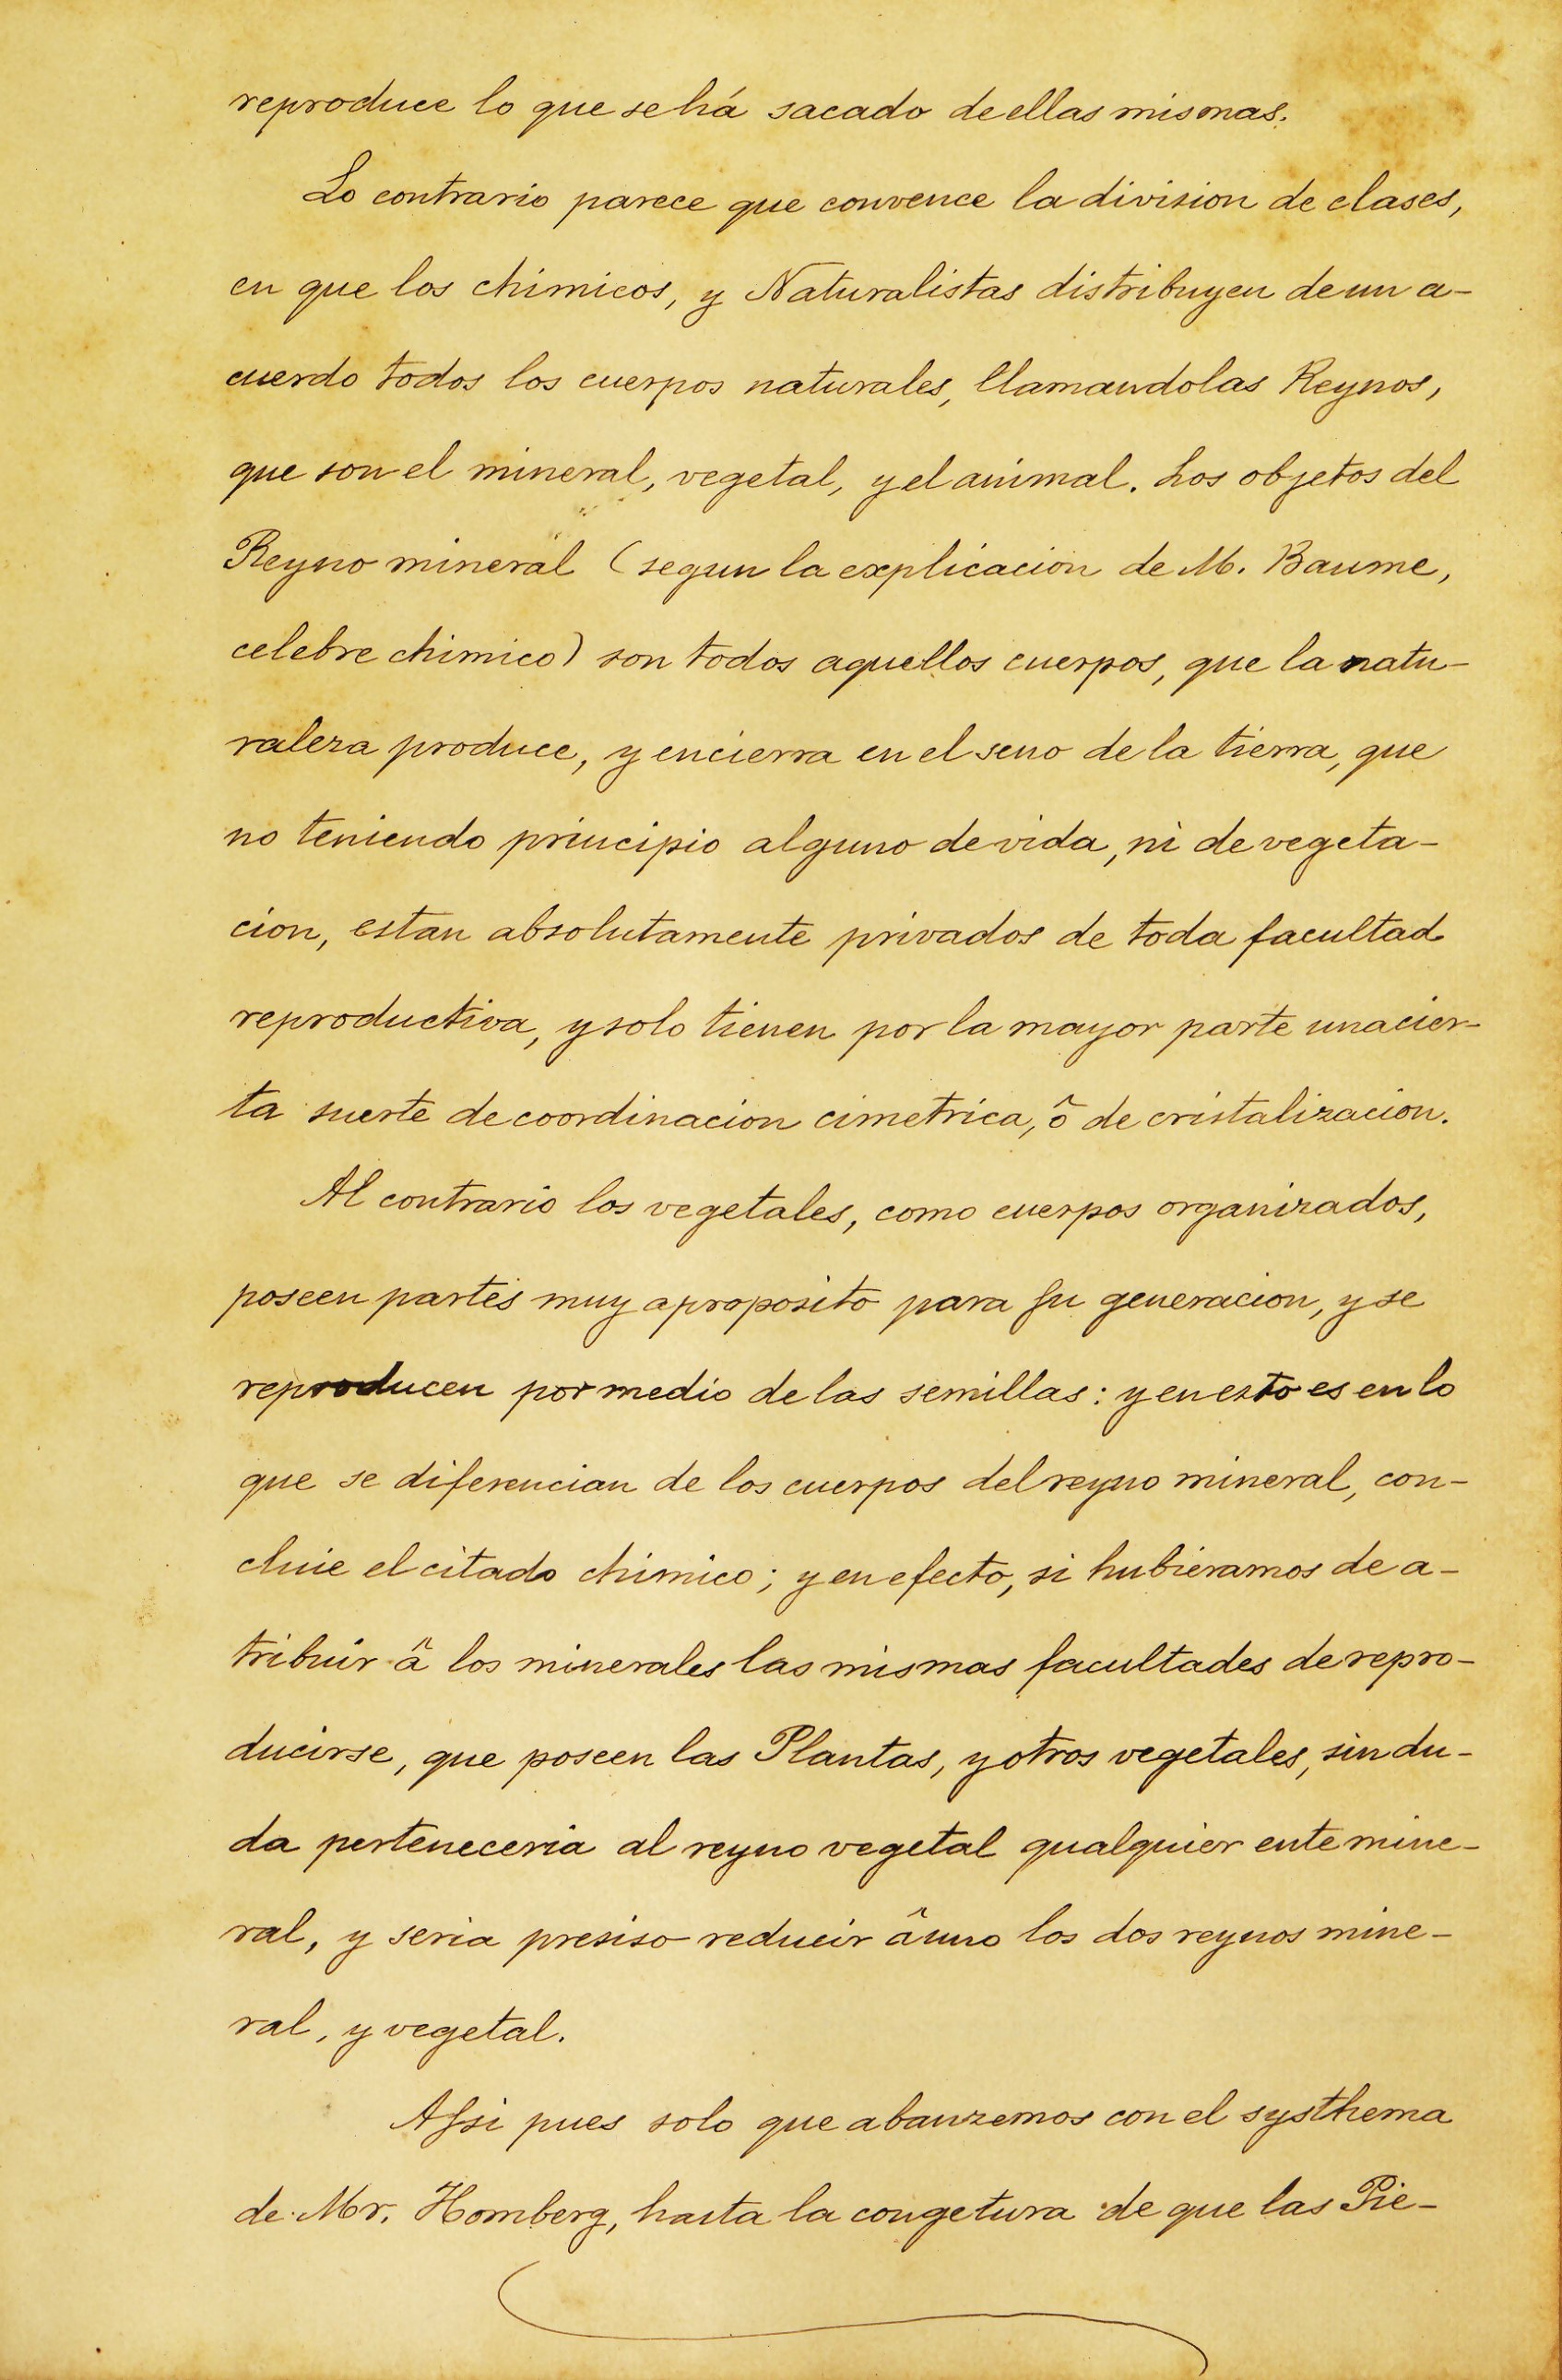 reproduce lo que se há sacado de ellas mismas.
Lo contrario parece que convence la division de clases,
en que los chimicos, y Naturalistas distribuyen de un a-
cuerdo todos los cuerpos naturales, llamandolas Reynos,
que son el mineral, vegetal, y el animal. Los objetos del
Reyno mineral (segun la explicacion de M. Baume,
celebre chimico) son todos aquellos cuerpos, que la natu-
raleza produce, y encierra en el seno de la tierra, que
no teniendo principio alguno de vida, ni de vegeta-
cion, estan absolutamente privados de toda facultad
reproductiva, y solo tienen por la mayor parte una cier-
ta suerte de coordinacion cimetrica, ô de cristalizacion.
Al contrario los vegetales, como cuerpos organizados,
poseen partes muy aproposito para su generacion, y se
reproducen por medio de las semillas: y en esto es en lo
que se diferencian de los cuerpos del reyno mineral, con-
cluie el citado chimico; y en efecto, si hubieramos de a-
tribuir â los minerales las mismas facultades de repro-
ducirse, que poseen las Plantas, y otros vegetales, sin du-
da perteneceria al reyno vegetal qualquier ente mine-
ral, y seria presiso reducir â uno los dos reynos mine-
ral, y vegetal.
Assi pues solo que abanzemos con el systhema
de Mr. Homberg, hasta la congetura de que las Pie-